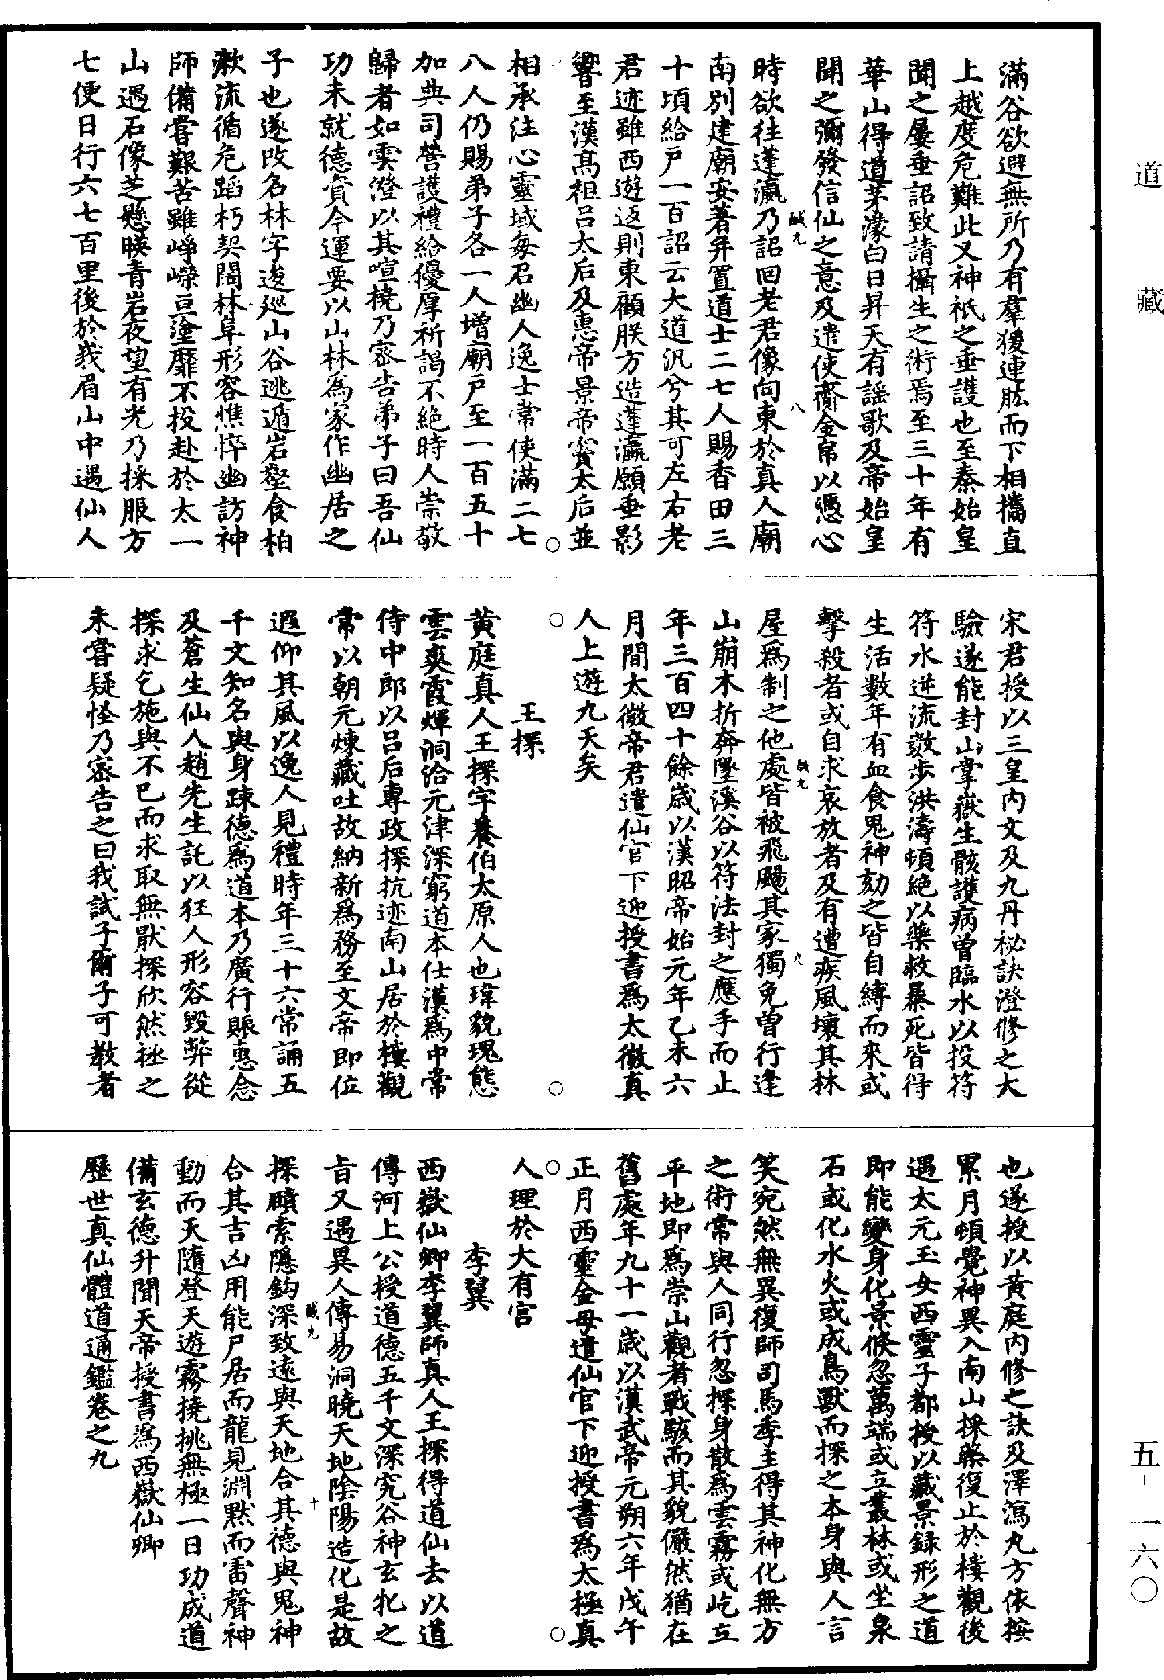 滿谷欲避無所乃有羣猨連肱而下相㩗直
上越度危難此又神祇之垂護也至秦始皇
聞之屢垂詔致請攝生之術焉至三十年有
華山得道茅濛白日昇天有謠歌及帝始皇
聞之彌發信仙之意及遣使齎金帛以憑心
時欲往蓬瀛乃詔回老君像向東於真人廟
南別建廟安著并置道士二七人賜香田三
十頃給戶一百詔云大道汎兮其可左右老
君迹雖西遊返則東顧朕方造蓬瀛願垂影
響至漢高祖呂太后及惠帝景帝竇太后並
相承注心靈域每召幽人逸士常使滿二七
八人仍賜弟子各一人增廟戶至一百五十
加典司營護禮給優厚祈謁不絕時人崇敬
歸者如雲澄以其喧撓乃密告弟子曰吾仙
功未就德負今運要以山林為家作幽居之
子也遂改名林字逡巡山谷逃遁岩壑食柏
漱流循危蹈朽契闊林阜形容憔悴幽訪神
師備嘗艱苦雖崢嶸亘塗靡不投赴於太一
山遇石像芝懸暎青岩夜望有光乃採服方
七便日行六七百里後於我眉山中遇仙人
宋君授以三皇內文及九丹祕訣澄修之大
驗遂能封山掌嶽生骸護病曾臨水以投符
符水逆流數步洪濤頓絕以藥救暴死皆得
生活數年有血食鬼神劾之皆自縛而來或
擊殺者或自求哀放者及有遭疾風壞其林
屋為制之他處皆被飛颺其家獨免曾行逢
山崩木折奔墜溪谷以符法封之應手而止
年三百四十餘歲以漢昭帝始元年乙未六
月間太微帝君遣仙官下迎授書為太微真
人上遊九天矣
王探
黃庭真人王探字養伯太原人也瑋貌瑰態
雲爽霞煇洞洽元津深窮道本仕漢為中常
侍中郎以呂后專政探抗迹南山居於樓觀
常以朝元煉藏吐故納新為務至文帝即位
遐仰其風以逸人見禮時年三十六常誦五
千文知名與身踈德為道本乃廣行賑惠念
及蒼生仙人趙先生託以狂人形容毀弊從
探求乞施與不已而求取無猒探欣然拯之
未嘗疑怪乃密告之曰我試子爾子可教者
也遂授以黃庭內修之訣及澤瀉丸方依按
累月頓覺神異入南山採藥復止於樓觀後
遇太元玉女西靈子都授以藏景録形之道
即能變身化景倏忽萬端或立叢林或坐泉
石或化水火或成鳥獸而探之本身與人言
笑宛然無異復師司馬季主得其神化無方
之術常與人同行忽探身散為雲霧或屹立
平地即為崇山觀者戰駭而其貌儼然猶在
舊處年九十一歲以漢武帝元朔六年戊午
正月西靈金母遣仙官下迎授書為太極真
人理於大有宫
李翼
西嶽仙卿李翼師真人王探得道仙去以道
傳河上公授道德五千文深究谷神玄牝之
旨又遇異人傳易洞曉天地陰陽造化是故
探賾索隱鈎深致遠與天地合其德與鬼神
合其吉凶用能尸居而龍見淵默而雷聲神
動而天隨登天遊霧撓挑無極一日功成道
備玄德升聞天帝授書為西嶽仙卿
歷世真仙體道通鑑卷之九
鹹九
八
鹹九
九
鹹九
十
道藏
五-一六〇